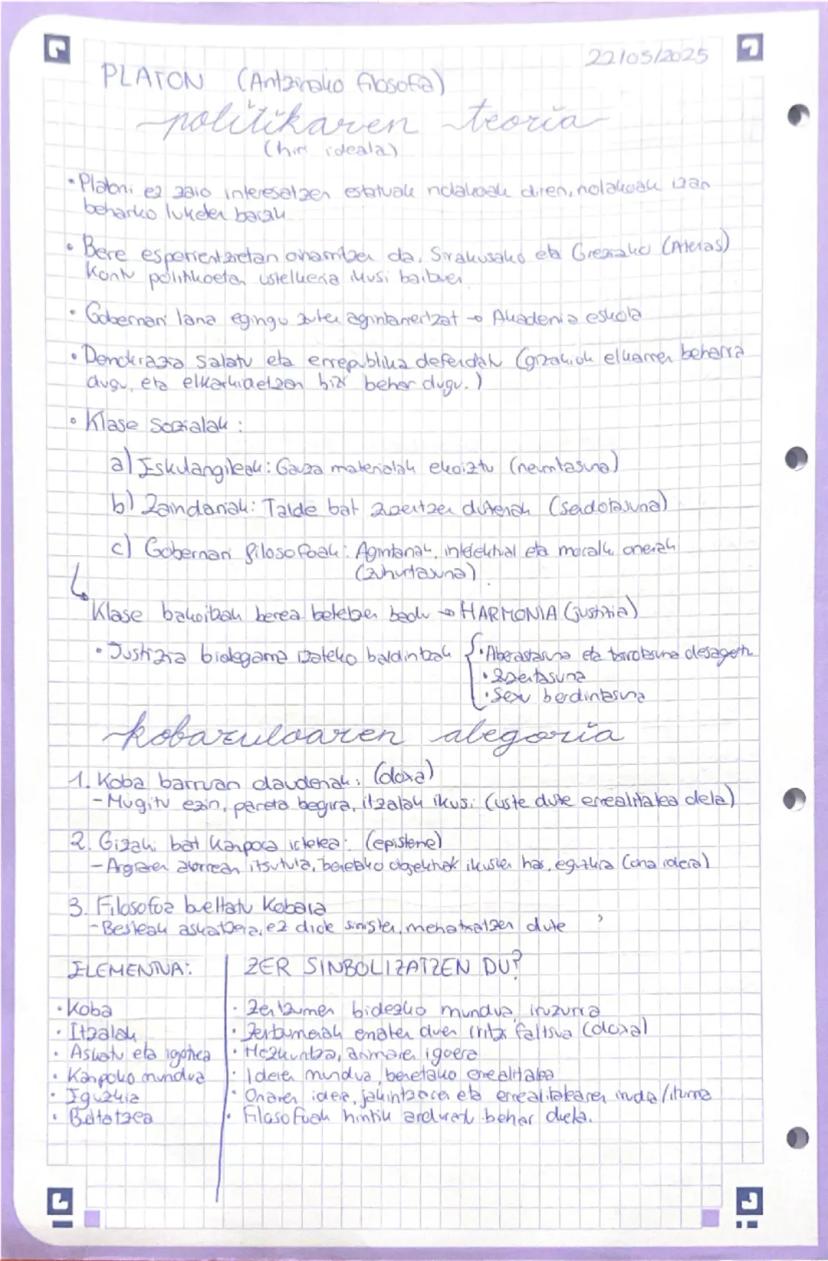 22/05/2025
PLATON (Antzinako filosofia)
politikaren teoria
(hiri ideala)
• Platoni ez zaio interesatzen estatuak nolakoak diren, nolakoak izan
beharko luketen baizik
• Bere esperientzietan oinarritzen da, Sirakusako eta Greziako (Atenas)
kontu politikoetan ustelkeria ikusi baitzuen
• Gobernari lana egingo zuten agintarientzat → Akademia eskola
• Demokrazia salatu eta errepublika defendatu (gizakiok elkarren beharra
dugu, eta elkarbizitzen bizi behar dugu.)
• Klase sozialak:
a) Eskulangileak: Gauza materialak ekoiztu (neurritasuna)
b) Zaindariak: Talde bat zuzentzen dutenak (sendotasuna)
c) Gobernari filosofoak: Agintariak, intelektual eta moralki onenak
(zuhurtasuna).
Klase bakoitzak berea betetzen badu → HARMONIA (justizia)
• Justizia bideragarria izateko baldintzak
• Aberastasuna eta txirotasuna desagertu
• Zuzentasuna
• Sexu berdintasuna
kobazuloaren alegoria
1. Koba barruan daudenak: (doxa)
- Mugitu ezin, pareta begira, itzalak ikusi (uste dute errealitatea dela)
2. Gizaki bat kanpora irtetea: (episteme)
- Argiaren aurrean itsututa, benetako objektuak ikusten has, eguzkia (ona ideia)
3. Filosofoa bueltatu kobara
- Besteak askatzera, ez diote sinisten, mehatxatzen dute
ELEMENTUA: ZER SINBOLIZATZEN DU?
• Koba • Zentzumen bidezko mundua, iruzurra
• Itzalak • Zentzumenak ematen duen iritzi faltsua (doxa)
• Askatu eta igotzea • Hezkuntza, arimaren igoera
• Kanpoko mundua • Ideien mundua, benetako errealitatea
• Eguzkia • Onaren ideia, jakintzaren eta errealitatearen irudia/iturria
• Bueltatzea • Filosofoak hiritik arduratu behar duela.